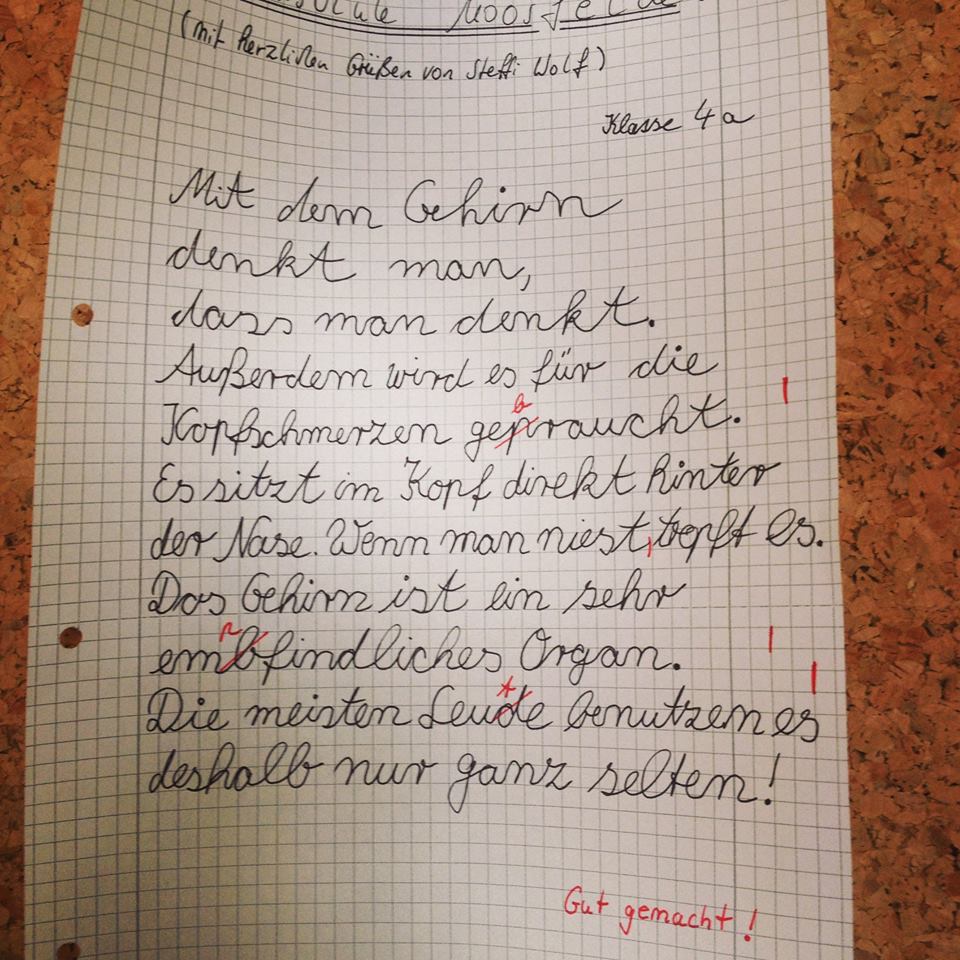 (mit herzlichen Grüßen von Steffi Wolf)
Klasse 4a
Mit dem Gehirn
denkt man,
dass man denkt.
Außerdem wird es für die
b
Kopfschmerzen gepraucht.
Es sitzt im Kopf direkt hinter
der Nase. Wenn man niest, tropft es.
Das Gehirn ist ein sehr
p
embfindliches Organ.
t
Die meisten Leude benutzen es
deshalb nur ganz selten!
Gut gemacht!